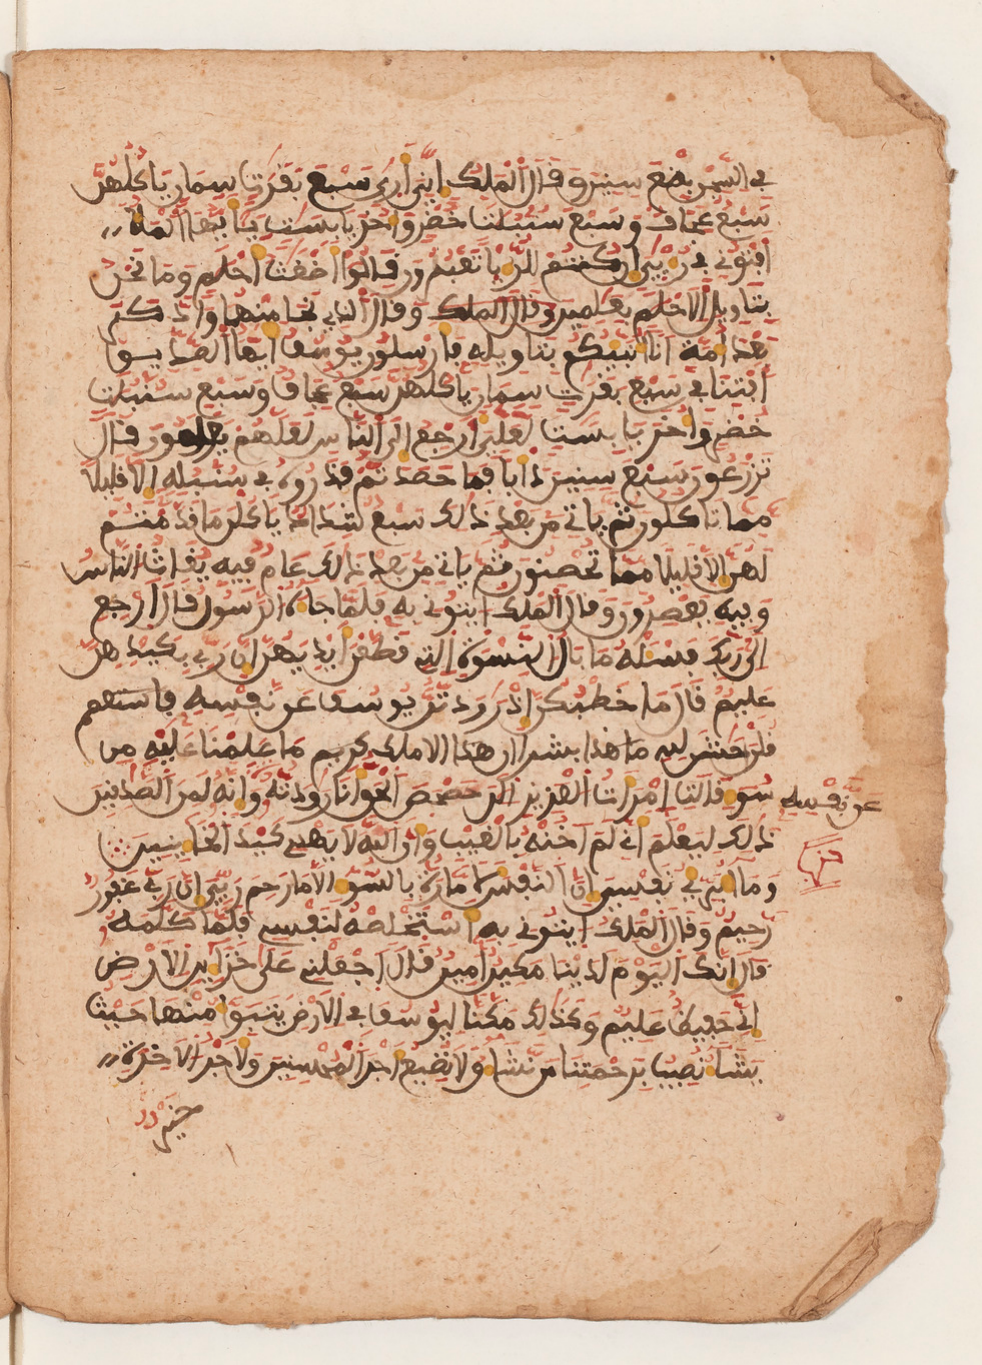 في السجن بضع سنين وقال الملك إني أرى سبع بقرت سمان ياكلهن
سبع عجاف وسبع سنبلت خضر وأخر يابست يأيها الملأ
أفتوني في رءيي إن كنتم للرءيا تعبرون قالوا أضغث أحلم وما نحن
بتاويل الاحلم بعلمين وقال الملك وقال الذي نجا منهما واذكر
بعد أمة أنا أنبئكم بتاويله فارسلون يوسف أيها الصديق
أفتنا في سبع بقرت سمان ياكلهن سبع عجاف وسبع سنبلت
خضر وأخر يابست لعلي أرجع إلى الناس لعلهم يعلمون قال
تزرعون سبع سنين دأبا فما حصدتم فذروه في سنبله إلا قليلا
مما تاكلون ثم ياتي من بعد ذلك سبع شداد ياكلن ما قدمتم
لهن إلا قليلا مما تحصنون ثم ياتي من بعد ذلك عام فيه يغاث الناس
وفيه يعصرون وقال الملك ايتوني به فلما جاءه الرسول قال ارجع
إلى ربك فسئله ما بال النسوة التي قطعن أيديهن إن ربي بكيدهن
عليم قال ما خطبكن إذ رودتن يوسف عن نفسه فاستعصم
قلن حش لله ما هذا بشرا إن هذا إلا ملك كريم ما علمنا عليه من
سوء قالت امرأت العزيز الن حصحص الحق أنا رودته وإنه لمن الصدقين
عن نفسه
ذلك ليعلم أني لم أخنه بالغيب وأن الله لا يهدي كيد الخاينين
وما أبرئ نفسي إن النفس لأمارة بالسوء إلا ما رحم ربي إن ربي غفور
رحيم وقال الملك ايتوني به أستخلصه لنفسي فلما كلمه
قال إنك اليوم لدينا مكين أمين قال اجعلني على خزاين الارض
إني حفيظ عليم وكذلك مكنا ليوسف في الارض يتبوأ منها حيث
يشاء نصيب برحمتنا من نشاء ولا نضيع أجر المحسنين ولأجر الاخرة
خير